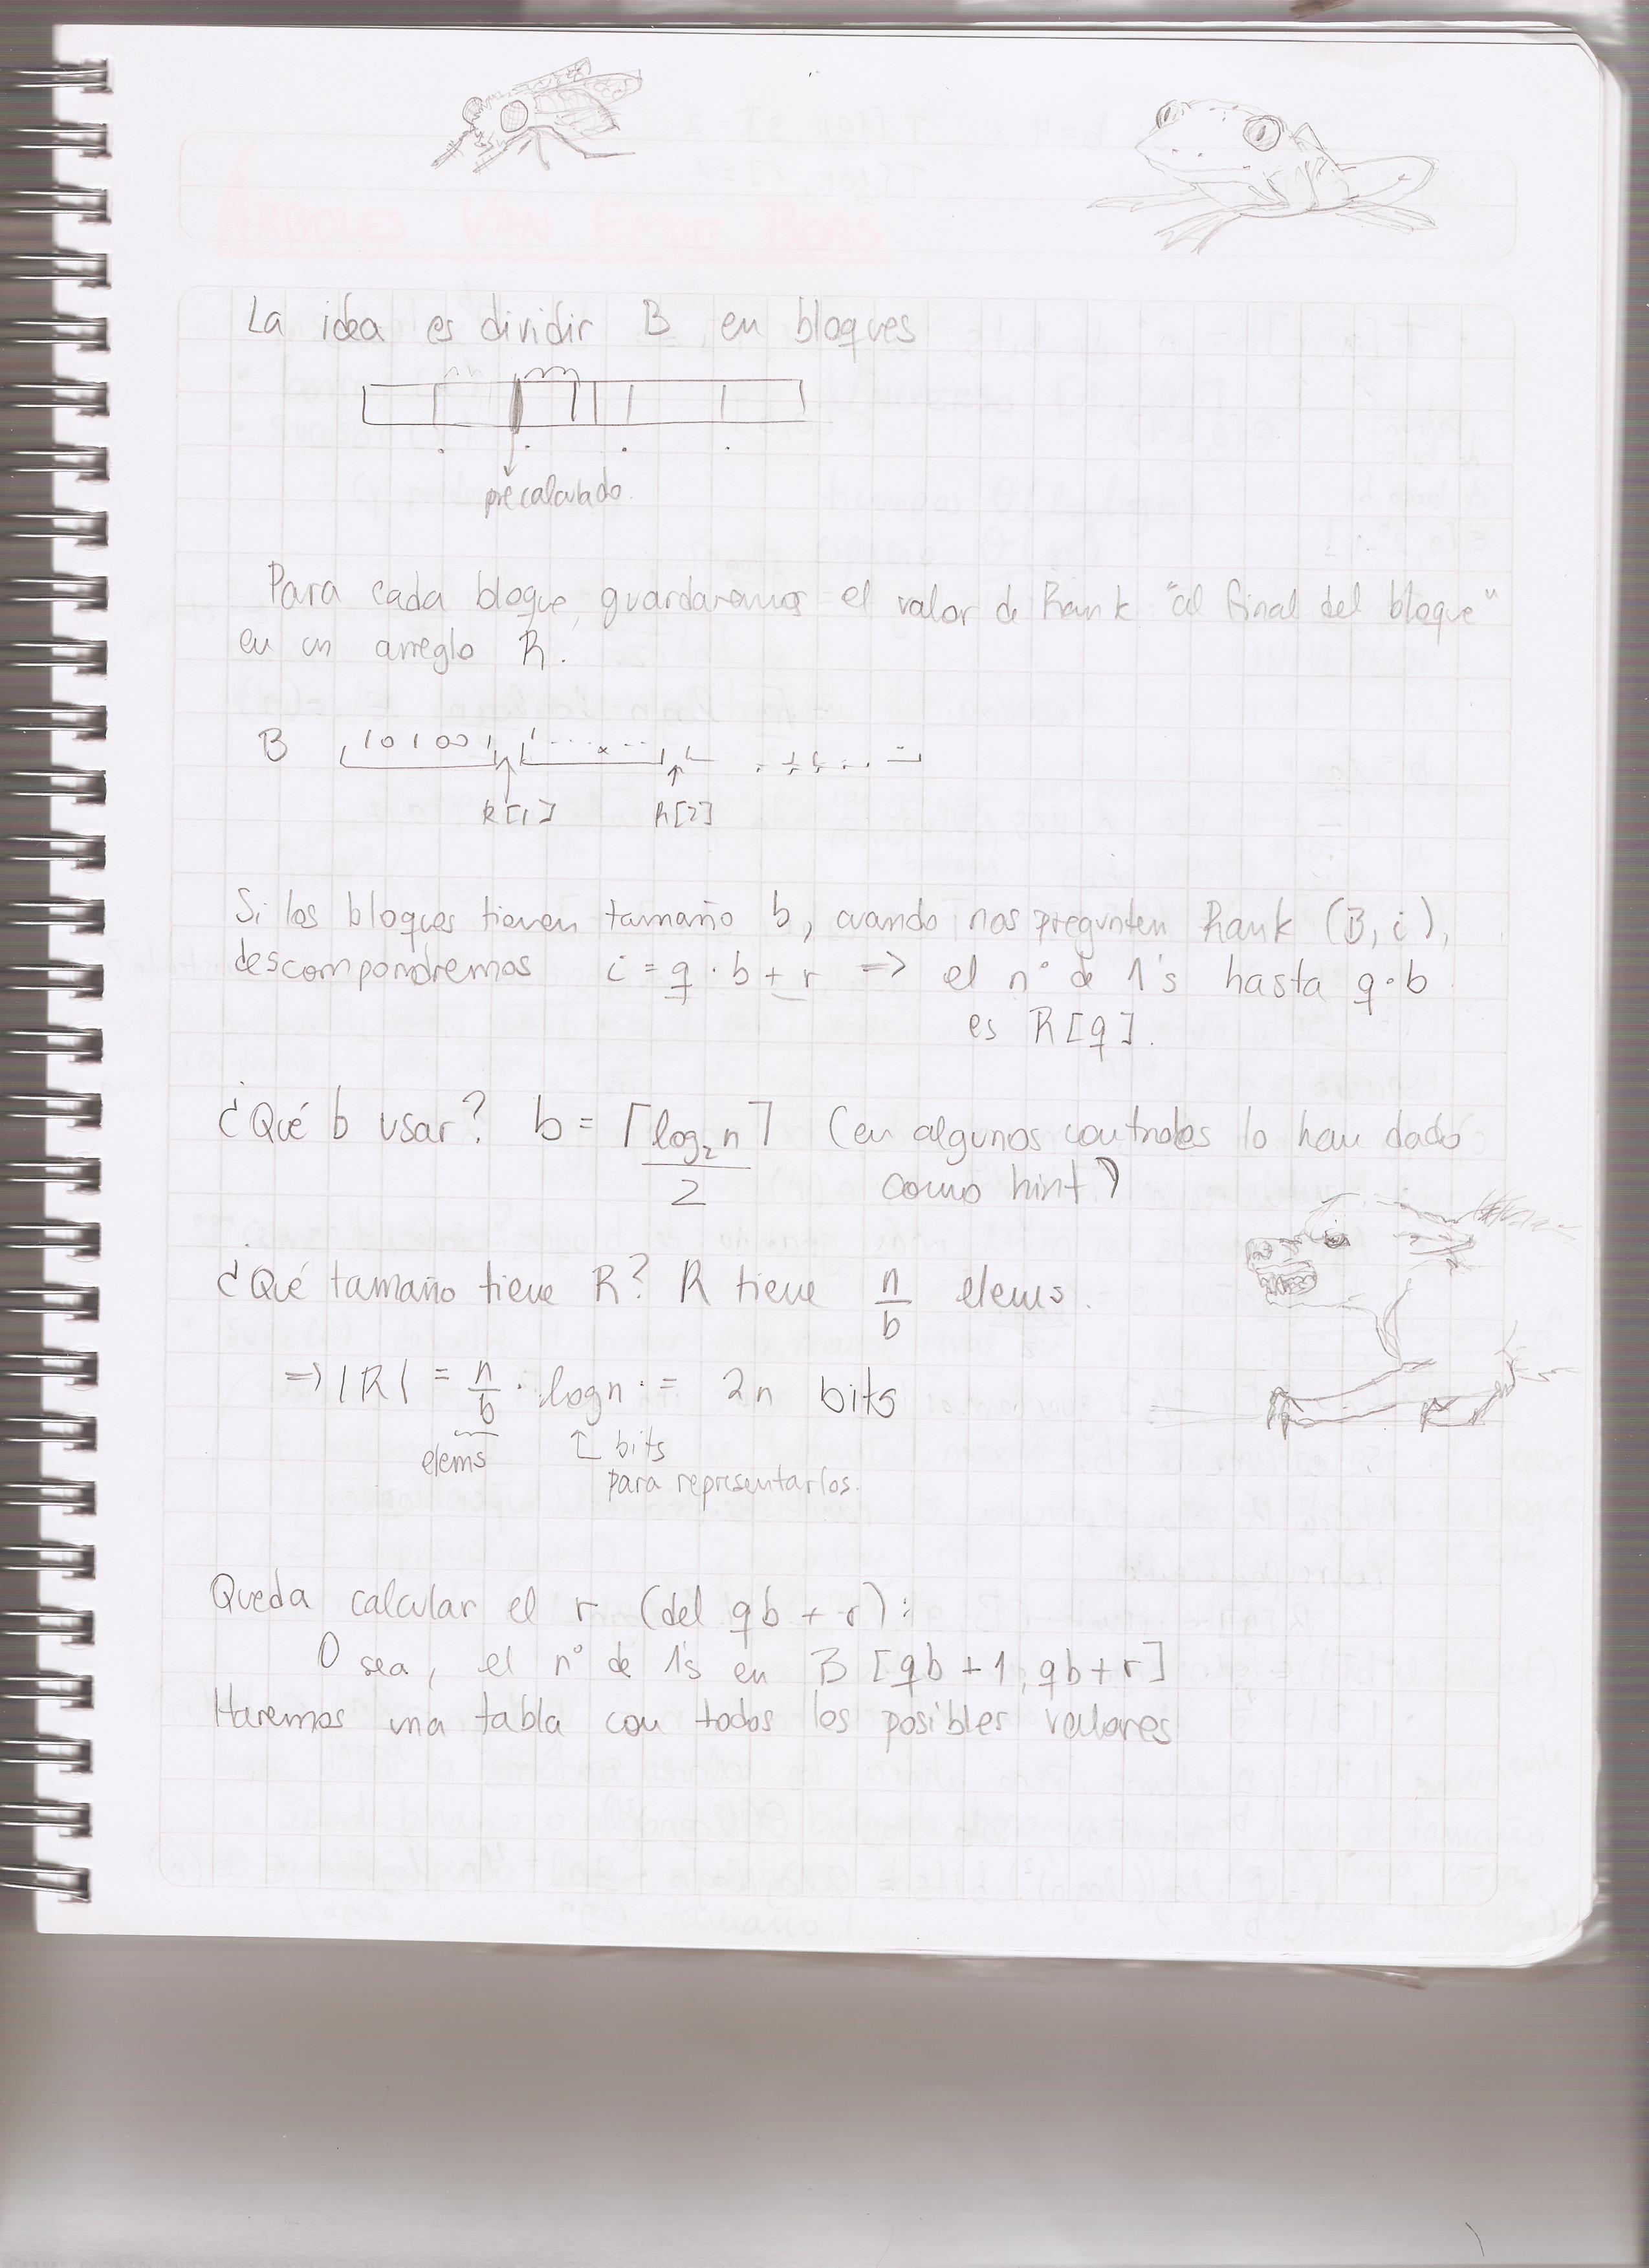 ÁRBOLES VAN EMDE BOAS
La idea es dividir B en bloques
precalculado.
Para cada bloque, guardaremos el valor de Rank "al final del bloque"
en un arreglo R.
B 1 0 1 0 0 1 1 ... x ..
R[1] R[2]
Si los bloques tienen tamaño b, cuando nos pregunten Rank (B, i),
descompondremos i = q · b + r => el n° de 1's hasta q · b
es R[q].
¿Qué b usar? b = ⌈log₂n⌉ (en algunos controles lo han dado
2 como hint)
¿Qué tamaño tiene R? R tiene n/b elems.
=> |R| = n/b · logn · = 2n bits
elems bits
para representarlos.
Queda calcular el r (del qb + r):
O sea, el n° de 1's en B [qb + 1, qb + r]
Haremos una tabla con todos los posibles valores